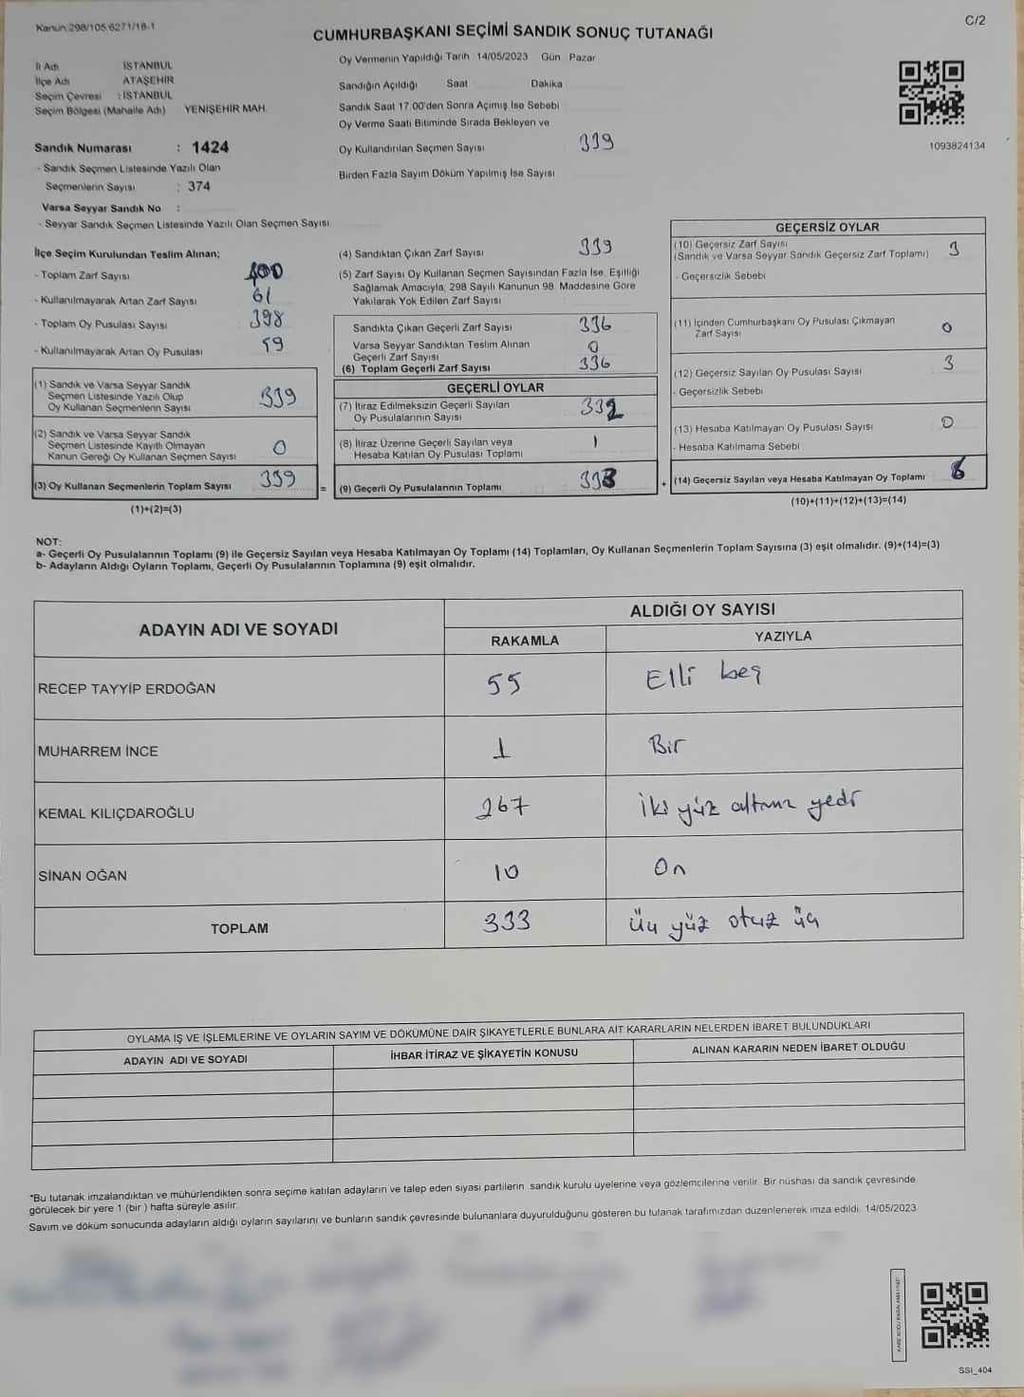 Kanun 298/105 6271/18-1
C/2
CUMHURBAŞKANI SEÇİMİ SANDIK SONUÇ TUTANAĞI
İl Adı İSTANBUL
İlçe Adı ATAŞEHİR
Seçim Çevresi : İSTANBUL
Seçim Bölgesi (Mahalle Adı) YENİŞEHİR MAH.
Oy Vermenin Yapıldığı Tarih 14/05/2023 Gün Pazar
Sandığın Açıldığı Saat Dakika
Sandık Saat 17.00'den Sonra Açılmış İse Sebebi
Oy Verme Saati Bitiminde Sırada Bekleyen ve
Oy Kullandırılan Seçmen Sayısı 339
Birden Fazla Sayım Döküm Yapılmış İse Sayısı
1093824134
Sandık Numarası : 1424
- Sandık Seçmen Listesinde Yazılı Olan
Seçmenlerin Sayısı : 374
Varsa Seyyar Sandık No :
- Seyyar Sandık Seçmen Listesinde Yazılı Olan Seçmen Sayısı
İlçe Seçim Kurulundan Teslim Alınan;
- Toplam Zarf Sayısı 400
- Kullanılmayarak Artan Zarf Sayısı 61
- Toplam Oy Pusulası Sayısı 398
- Kullanılmayarak Artan Oy Pusulası 59
(1) Sandık ve Varsa Seyyar Sandık
Seçmen Listesinde Yazılı Olup
Oy Kullanan Seçmenlerin Sayısı 339
(2) Sandık ve Varsa Seyyar Sandık
Seçmen Listesinde Kayıtlı Olmayan
Kanun Gereği Oy Kullanan Seçmen Sayısı 0
(3) Oy Kullanan Seçmenlerin Toplam Sayısı 339 =
(1)+(2)=(3)
(4) Sandıktan Çıkan Zarf Sayısı 339
(5) Zarf Sayısı Oy Kullanan Seçmen Sayısından Fazla İse, Eşitliği
Sağlamak Amacıyla, 298 Sayılı Kanunun 98. Maddesine Göre
Yakılarak Yok Edilen Zarf Sayısı
Sandıkta Çıkan Geçerli Zarf Sayısı 336
Varsa Seyyar Sandıktan Teslim Alınan
Geçerli Zarf Sayısı 0
(6) Toplam Geçerli Zarf Sayısı 336
GEÇERLİ OYLAR
(7) İtiraz Edilmeksizin Geçerli Sayılan
Oy Pusulalarının Sayısı 332
(8) İtiraz Üzerine Geçerli Sayılan veya
Hesaba Katılan Oy Pusulası Toplamı 1
(9) Geçerli Oy Pusulalarının Toplamı 333 +
GEÇERSİZ OYLAR
(10) Geçersiz Zarf Sayısı
(Sandık ve Varsa Seyyar Sandık Geçersiz Zarf Toplamı) 3
- Geçersizlik Sebebi
(11) İçinden Cumhurbaşkanı Oy Pusulası Çıkmayan
Zarf Sayısı 0
(12) Geçersiz Sayılan Oy Pusulası Sayısı 3
- Geçersizlik Sebebi
(13) Hesaba Katılmayan Oy Pusulası Sayısı 0
- Hesaba Katılmama Sebebi
(14) Geçersiz Sayılan veya Hesaba Katılmayan Oy Toplamı 6
(10)+(11)+(12)+(13)=(14)
NOT:
a- Geçerli Oy Pusulalarının Toplamı (9) ile Geçersiz Sayılan veya Hesaba Katılmayan Oy Toplamı (14) Toplamları, Oy Kullanan Seçmenlerin Toplam Sayısına (3) eşit olmalıdır. (9)+(14)=(3)
b- Adayların Aldığı Oyların Toplamı, Geçerli Oy Pusulalarının Toplamına (9) eşit olmalıdır.
ADAYIN ADI VE SOYADI
ALDIĞI OY SAYISI
RAKAMLA YAZIYLA
RECEP TAYYİP ERDOĞAN 55 Elli beş
MUHARREM İNCE 1 Bir
KEMAL KILIÇDAROĞLU 267 iki yüz altmış yedi
SİNAN OĞAN 10 On
TOPLAM 333 Üç yüz otuz üç
OYLAMA İŞ VE İŞLEMLERİNE VE OYLARIN SAYIM VE DÖKÜMÜNE DAİR ŞİKAYETLERLE BUNLARA AİT KARARLARIN NELERDEN İBARET BULUNDUKLARI
ADAYIN ADI VE SOYADI İHBAR İTİRAZ VE ŞİKAYETİN KONUSU ALINAN KARARIN NEDEN İBARET OLDUĞU
*Bu tutanak imzalandıktan ve mühürlendikten sonra seçime katılan adayların ve talep eden siyasi partilerin sandık kurulu üyelerine veya gözlemcilerine verilir. Bir nüshası da sandık çevresinde
görülecek bir yere 1 (bir) hafta süreyle asılır.
Sayım ve döküm sonucunda adayların aldığı oyların sayılarını ve bunların sandık çevresinde bulunanlara duyurulduğunu gösteren bu tutanak tarafımızdan düzenlenerek imza edildi. 14/05/2023
SSI_404